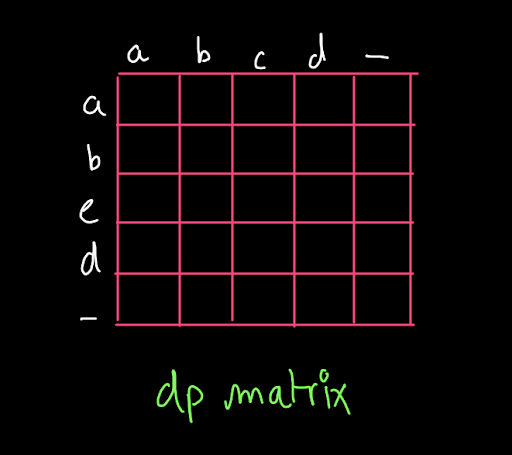 a b c d -
a
b
e
d
-
dp matrix